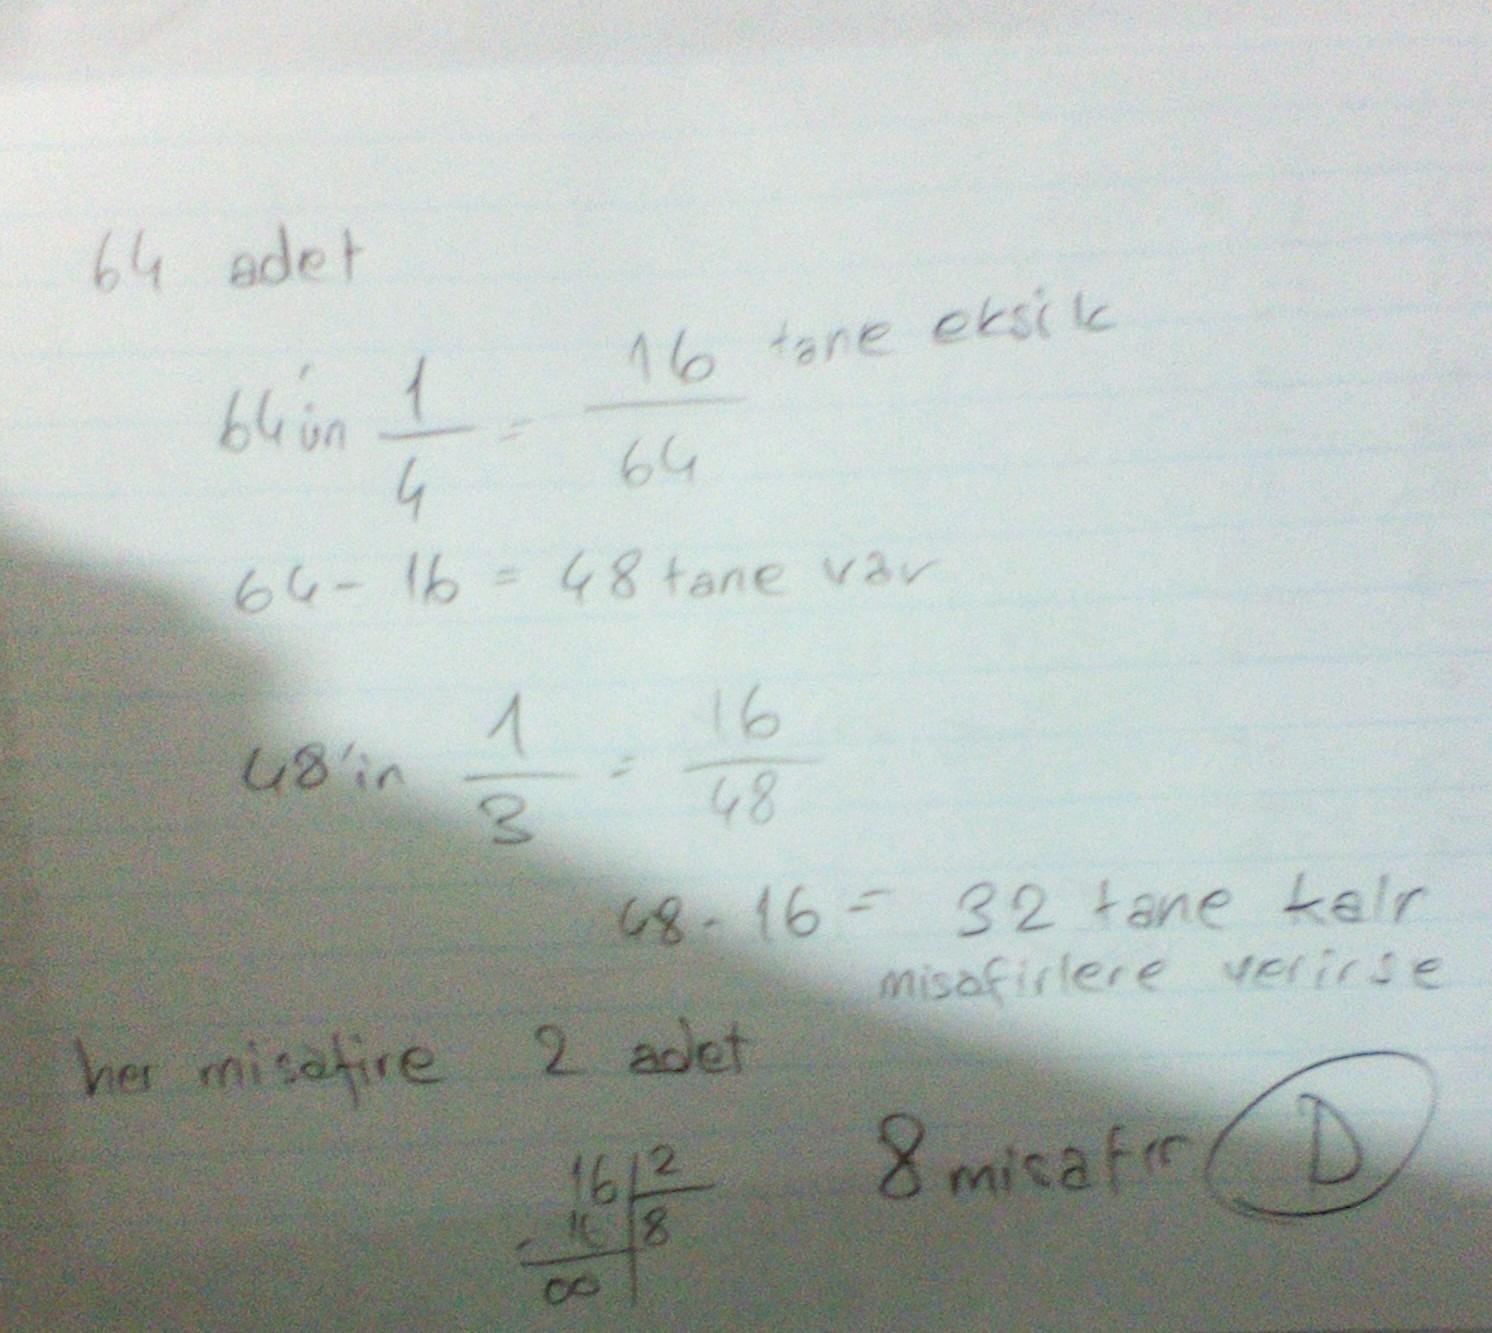 64 adet
64'ün 1/4 = 16/64 tane eksik
64 - 16 = 48 tane var
48'in 1/3 = 16/48
48 - 16 = 32 tane kalr
misafirlere verirse
her misafire 2 adet
16 | 2
- 16 | 8
00
8 misafir D